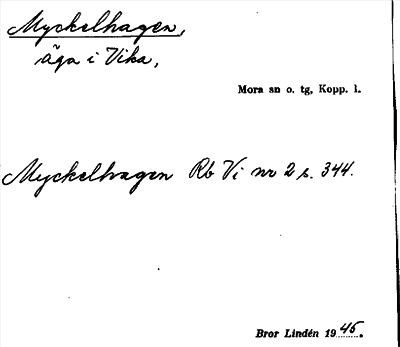 Myckelhagen,
äga i Vika,
Mora sn o. tg, Kopp. l.
Myckelhagen Rb Vi nr 2 s. 344.
Bror Lindén 1945.